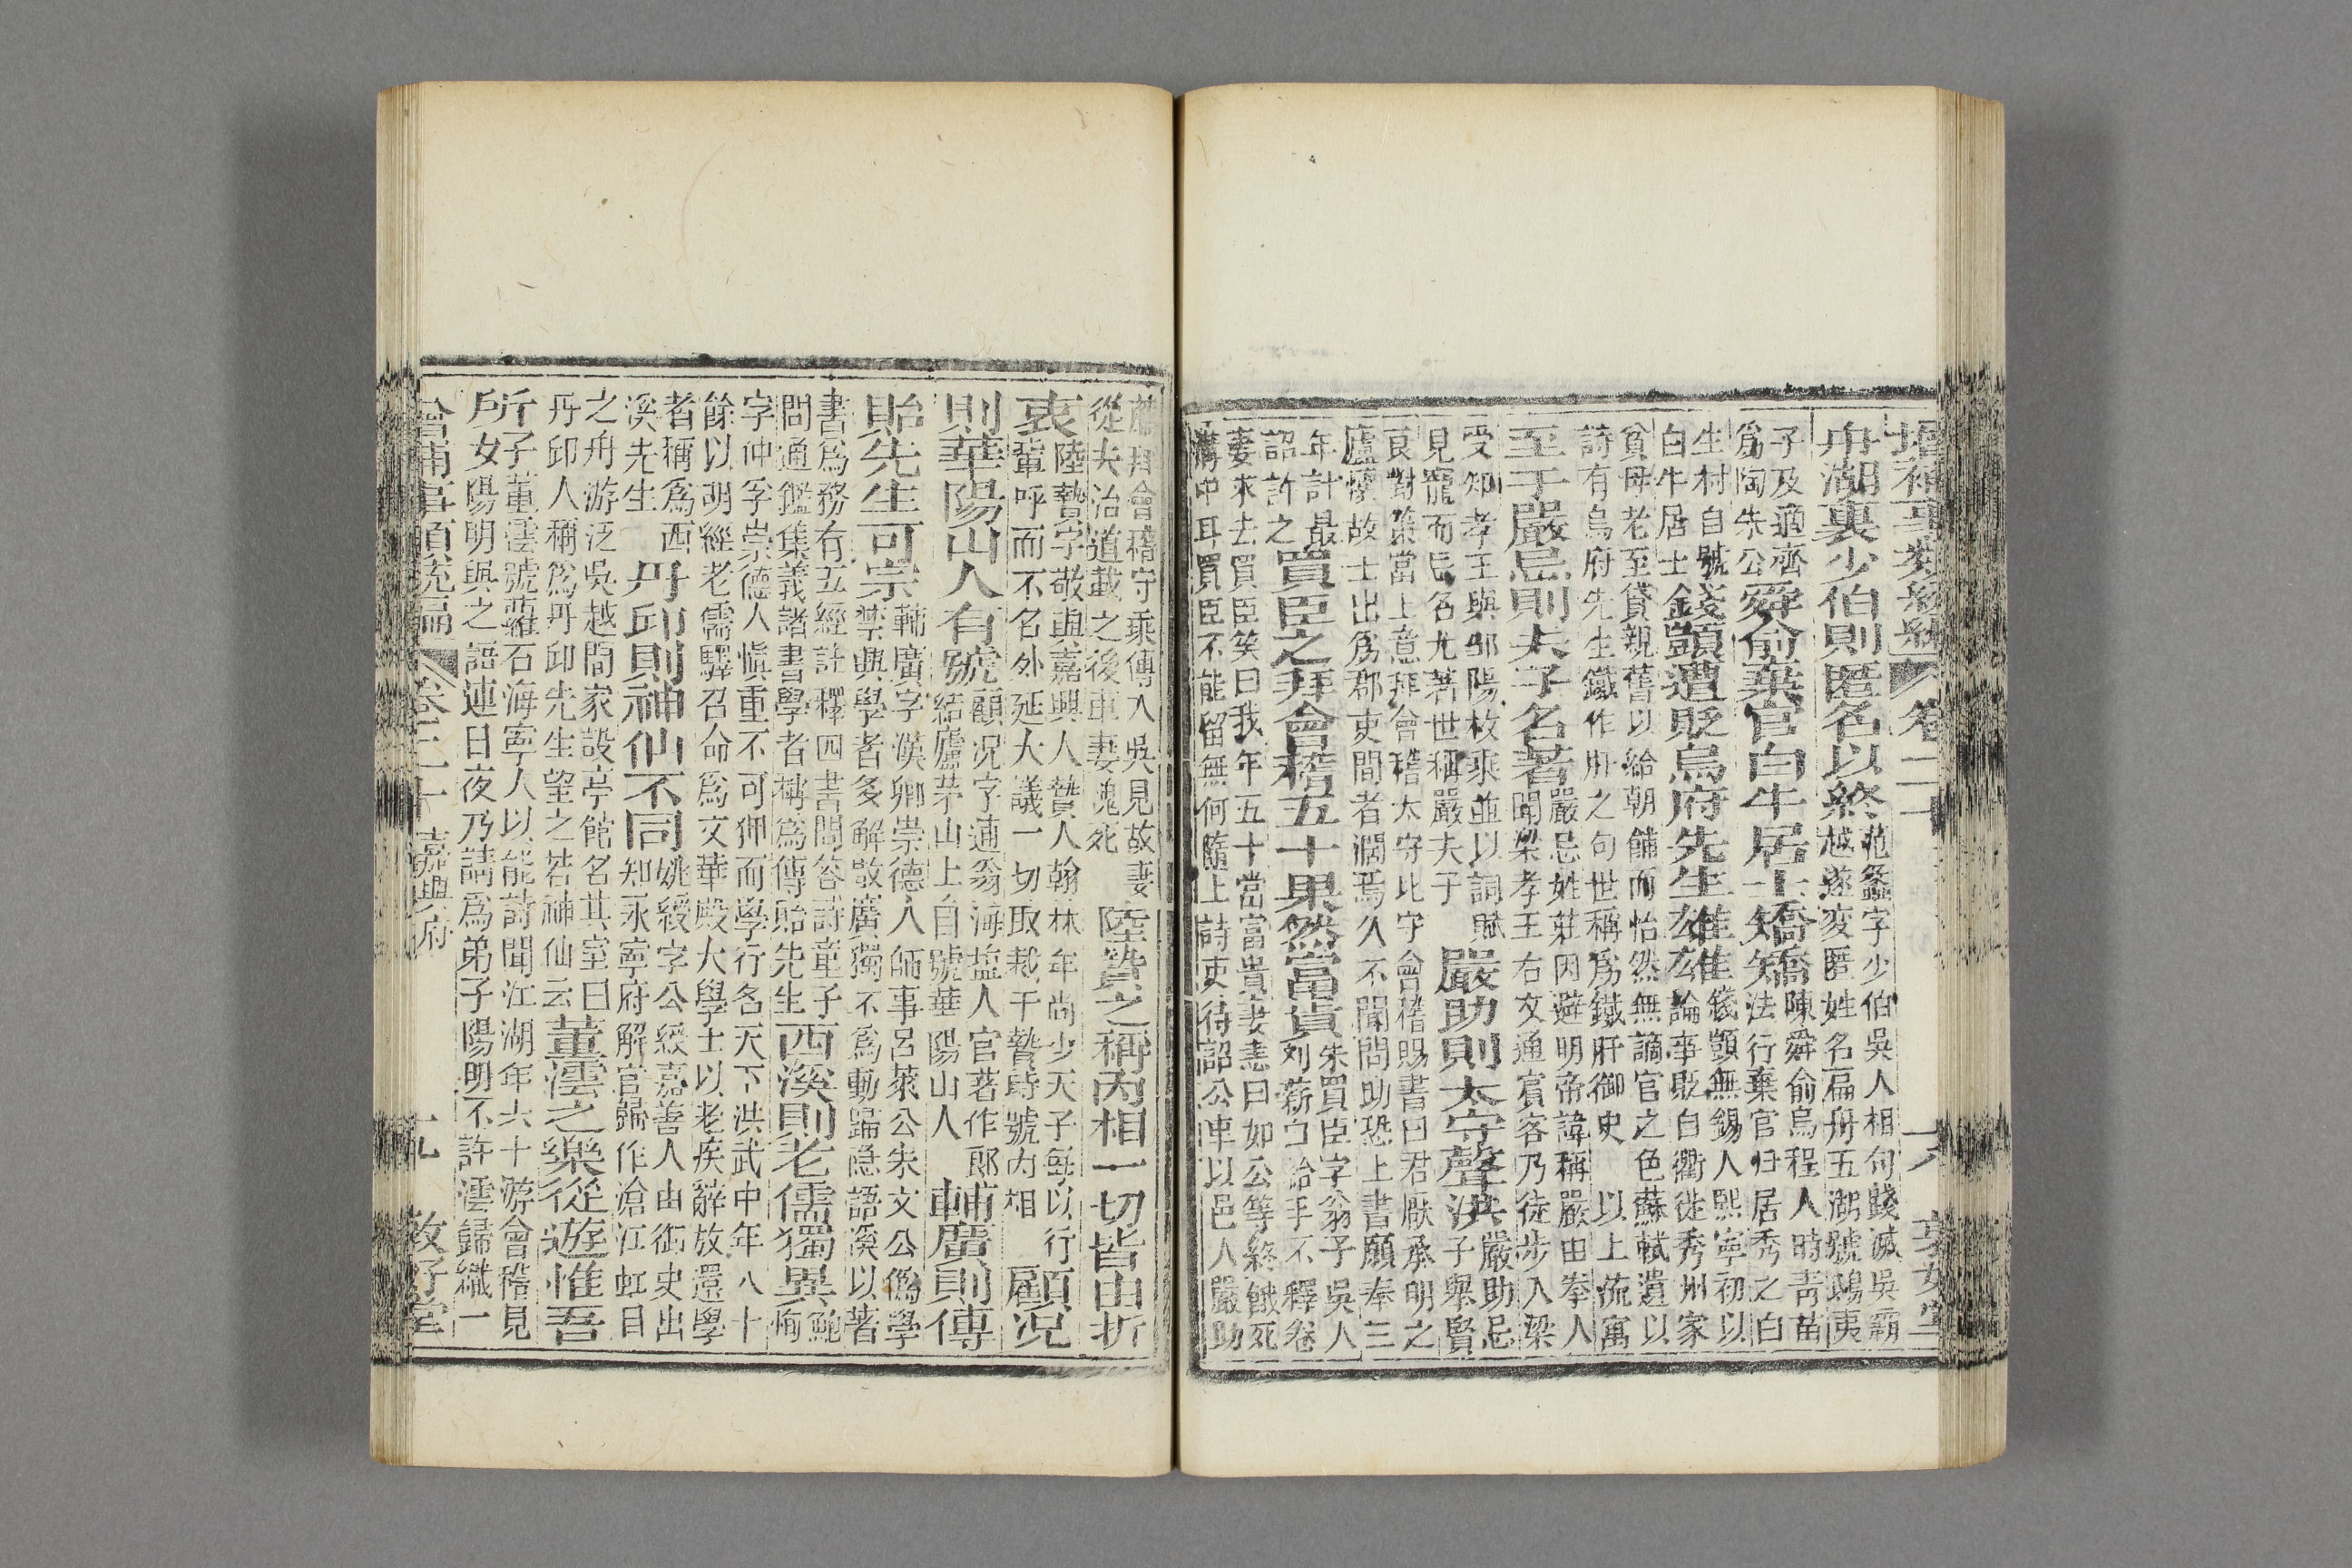 增補事類統編 卷二十 十八 敦好堂
舟湖裏少伯則匿名以終
范蠡字少伯吳人相句踐滅吳霸
越遂変匿姓名扁舟五湖號鴟夷
子及適齊
爲陶朱公
舜俞棄官白牛居士矯矯
陳舜俞烏程人時靑苗
法行棄官归居秀之白
生村自號
白牛居士
錢顗遭貶烏府先生玆雄雄
錢顗無錫人熙寧初以
論事貶自衢徙秀州家
貧母老至貸親舊以給朝餔而怡然無謫官之色蘇軾遺以
詩有烏府先生鐵作肝之句世稱爲鐵肝御史
以上流寓
至于嚴忌則夫子名著
嚴忌姓莊因避明帝諱稱嚴由拳人
聞梁孝王右文通賓客乃徒步入梁
受知孝王與鄒陽枚乘並以詞賦
見寵而忌名尤著世稱嚴夫子
嚴助則太守聲洪
嚴助忌
子舉賢
良對策當上意拜會稽太守比守會稽賜書曰君厭承明之
廬懷故士出爲郡吏間者濶焉久不聞問助恐上書願奉三
年計最
詔許之
買臣之拜會稽五十果然當貴
朱買臣字翁子吳人
刈薪口詒手不釋卷
妻求去買臣笑曰我年五十當富貴妻恚曰如公等終餓死
溝中耳買臣不能留無何隨上計吏待詔公車以邑人嚴助
薦拜會稽守乘傳入吳見故妻
從夫治道載之後車妻愧死
陸贄之稱內相一切皆由折
衷
陸贄字敬輿嘉興人贄人翰林年尚少天子每以行
輩呼而不名外延大議一切取裁于贄時號內相
顧况
則華陽山人有號
顧况字逋翁海塩人官著作郎
結廬茅山上自號華陽山人
輔廣則傳
貽先生可宗
輔廣字漢卿崇德人師事呂萊公朱文公僞學
禁興學者多解散廣獨不爲動歸隐語溪以著
書爲務有五經註釋四書問答詩童子
問通鑑集義諸書學者稱爲傳貽先生
西溪則老儒獨異
鮑恂
字仲孚崇德人愼重不可狎而學行名天下洪武中年八十
餘以明經老儒驛召命爲文華殿大學士以老疾辭放還學
者稱爲西
溪先生
丹邱則神仙不同
姚綬字公綬嘉善人由御史出
知永寧府解官歸作滄江虹目
之舟游泛吳越間家設亭館名其室曰
丹邱人稱爲丹邱先生望之若神仙云
董澐之樂從遊惟吾
所
子董澐號蘿石海寧人以能詩聞江湖年六十游會稽見
戶女陽明與之語連日夜乃請爲弟子陽明不許澐歸織一
增補事類統編 卷二十 嘉興府 十九 敦好堂